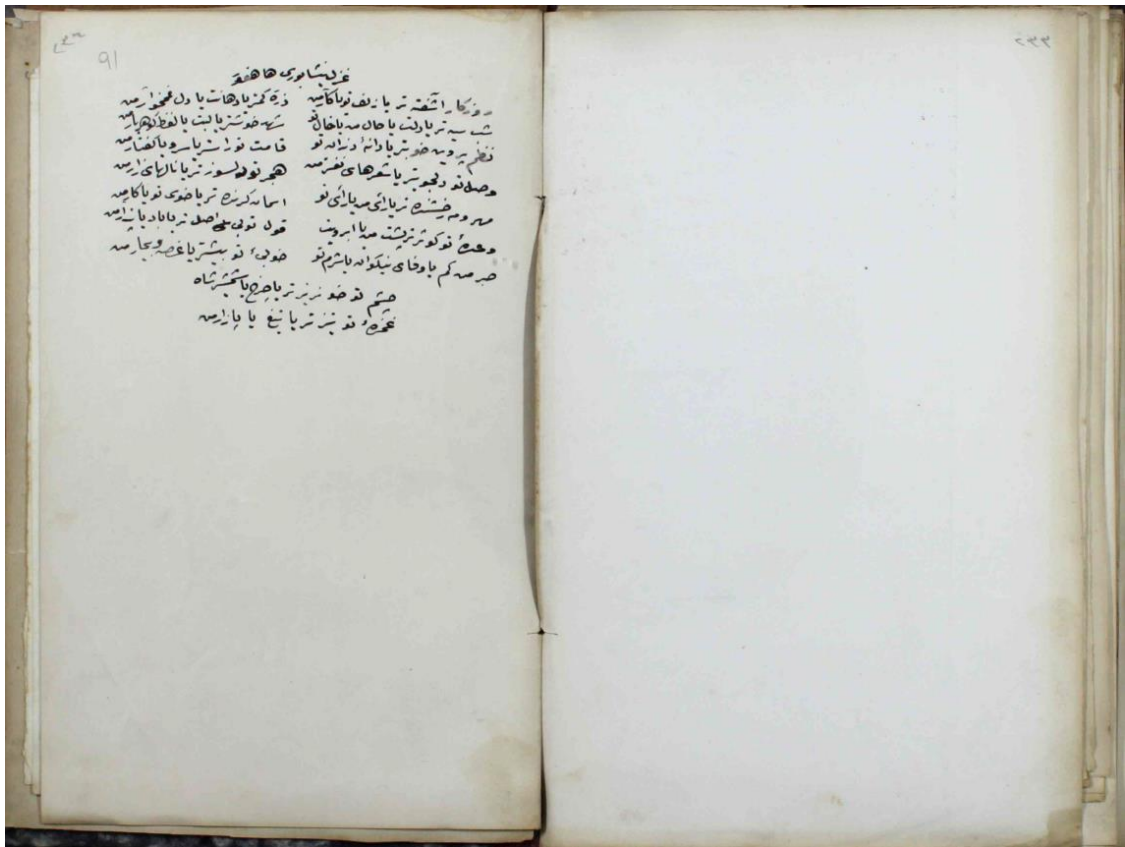 ۲۳۳
۲۳۴
91
غزل نیشابوری ها هفتم
روزگار آشفته تر یا زلف تو یا کار من ذره کمتر یا دهانت یا دل غمخوار من
شب سیه تر یا دلت یا حال من یا خال تو شهد خوشتر یا لبت یا لفظ گوهربار من
نظم پروین خوبتر یا دانهٔ دندان تو قامت تو راستتر یا سرو یا گفتار من
وصل تو دلجویتر یا شعرهای نغز من هجر تو دلسوزتر یا نالهای زار من
مهر و مه رخشنده تر یا رای من یا رای تو آسمان گردنده تر یا خوی تو یا کار من
وعدهٔ تو کوژتر یا پشت من یا ابرویت قول تو بی اصل تر یا باد یا پندار من
صبر من کم یا وفای نیکوان یا شرم تو خوبیٔ تو بیشتر یا غصه و تیمار من
چشم تو خونریزتر یا چرخ یا شمشیر شاه
غمزهٔ تو تیزتر یا تیغ یا بازار من